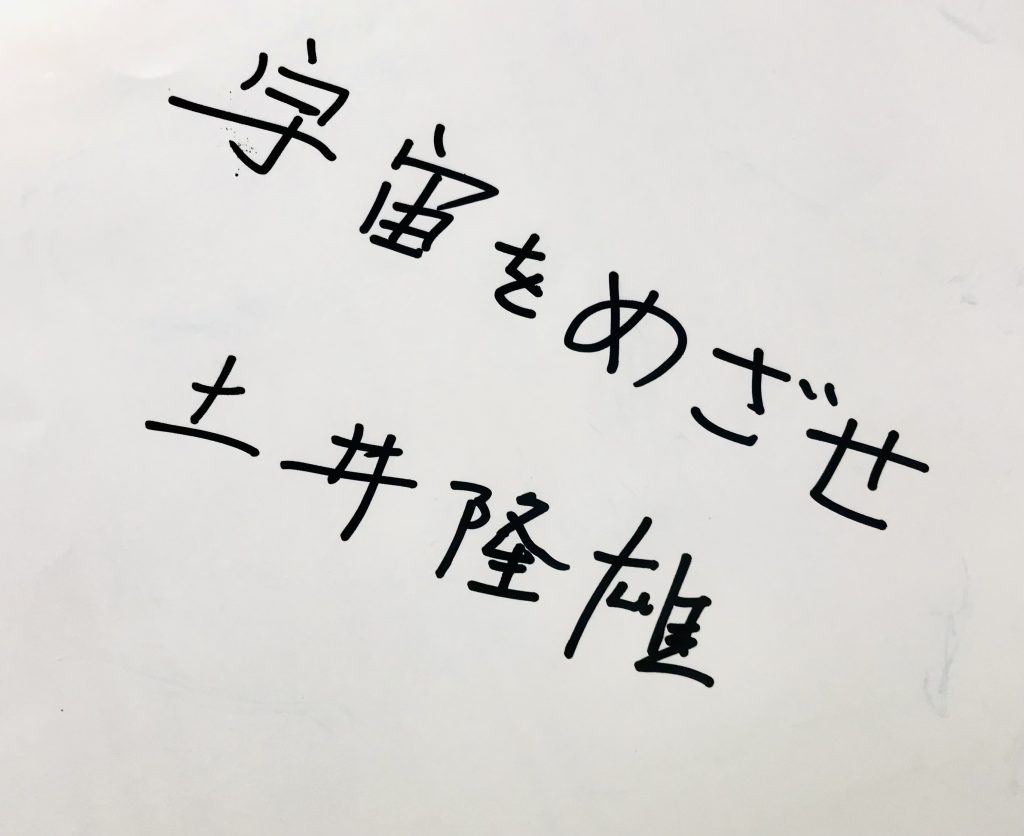 宇宙をめざせ
土井隆雄